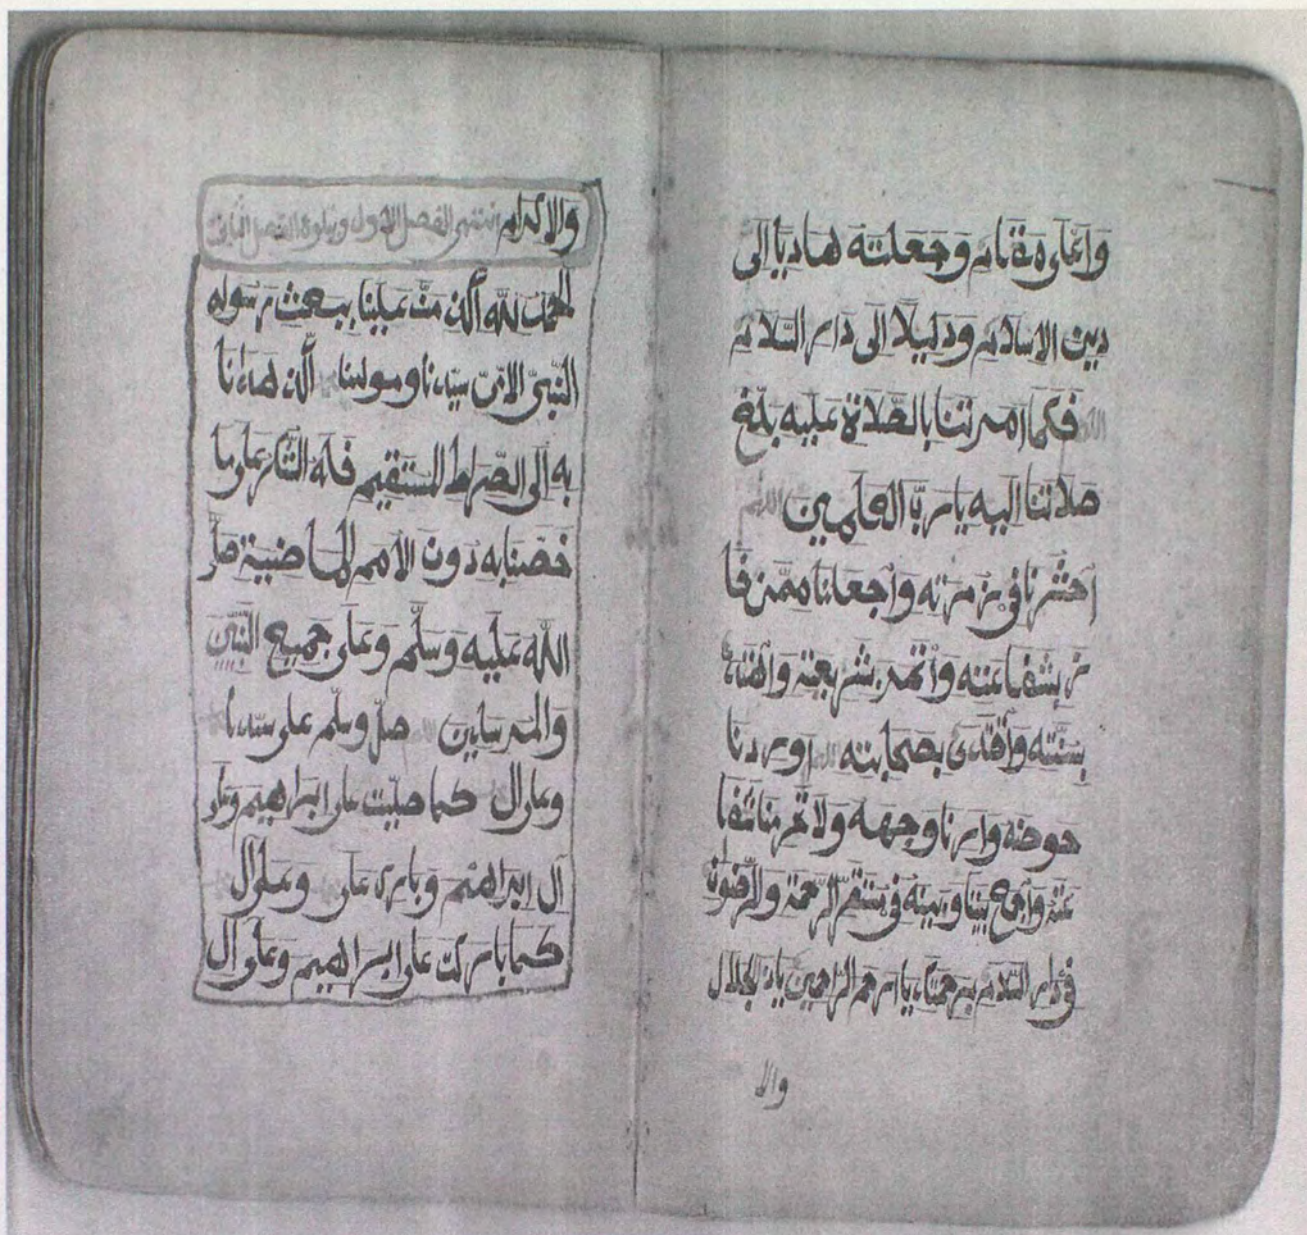 وَأعلى مقام وجعلته هاديا إلى
دين الاسلام ودليلا إلى دار السّلام
اللهم فكما امرتنا بالصّلاة عليه بلّغ
صلاتنا اليه يا ربّ العلمين اللهم
احشرنا في زمرته وَاجعلنا ممّن فا
ز بشفاعته وَأتمر بشريعته وَاهتدى
بسنّته وَاقتدى بصحابته اللهم اوردنا
حوضه وَارنا وجهه ولا تحرمنا شفا
عته وَاجمع بيننا وبينه في مستقرّ الرّحمة والرّضوان
في دار السّلام برحمتك يا ارحم الرّاحمين ياذا الجلال
والا
وَالاكرام انتهى الفصل الاول ويتلوه الفصل الثاني
الحمد للّه الّذى منّ علينا ببعث رسوله
النّبيّ الامّيّ سيّدنا ومولينا الّذى هدىنا
به إلى الصّراط المستقيم فله الشّكر على ما
خصّنا به دون الأمم الماضية صلّى
اللّه عليه وسلّم وعلى جميع النّبيّين
والمرسلين اللهم صلّ وسلّم على سيّدنا
وعلى آل كما صلّيت على ابراهيم وعلى
آل ابراهيم وبارك على وعلى آل
كما باركت على ابراهيم وعلى آل